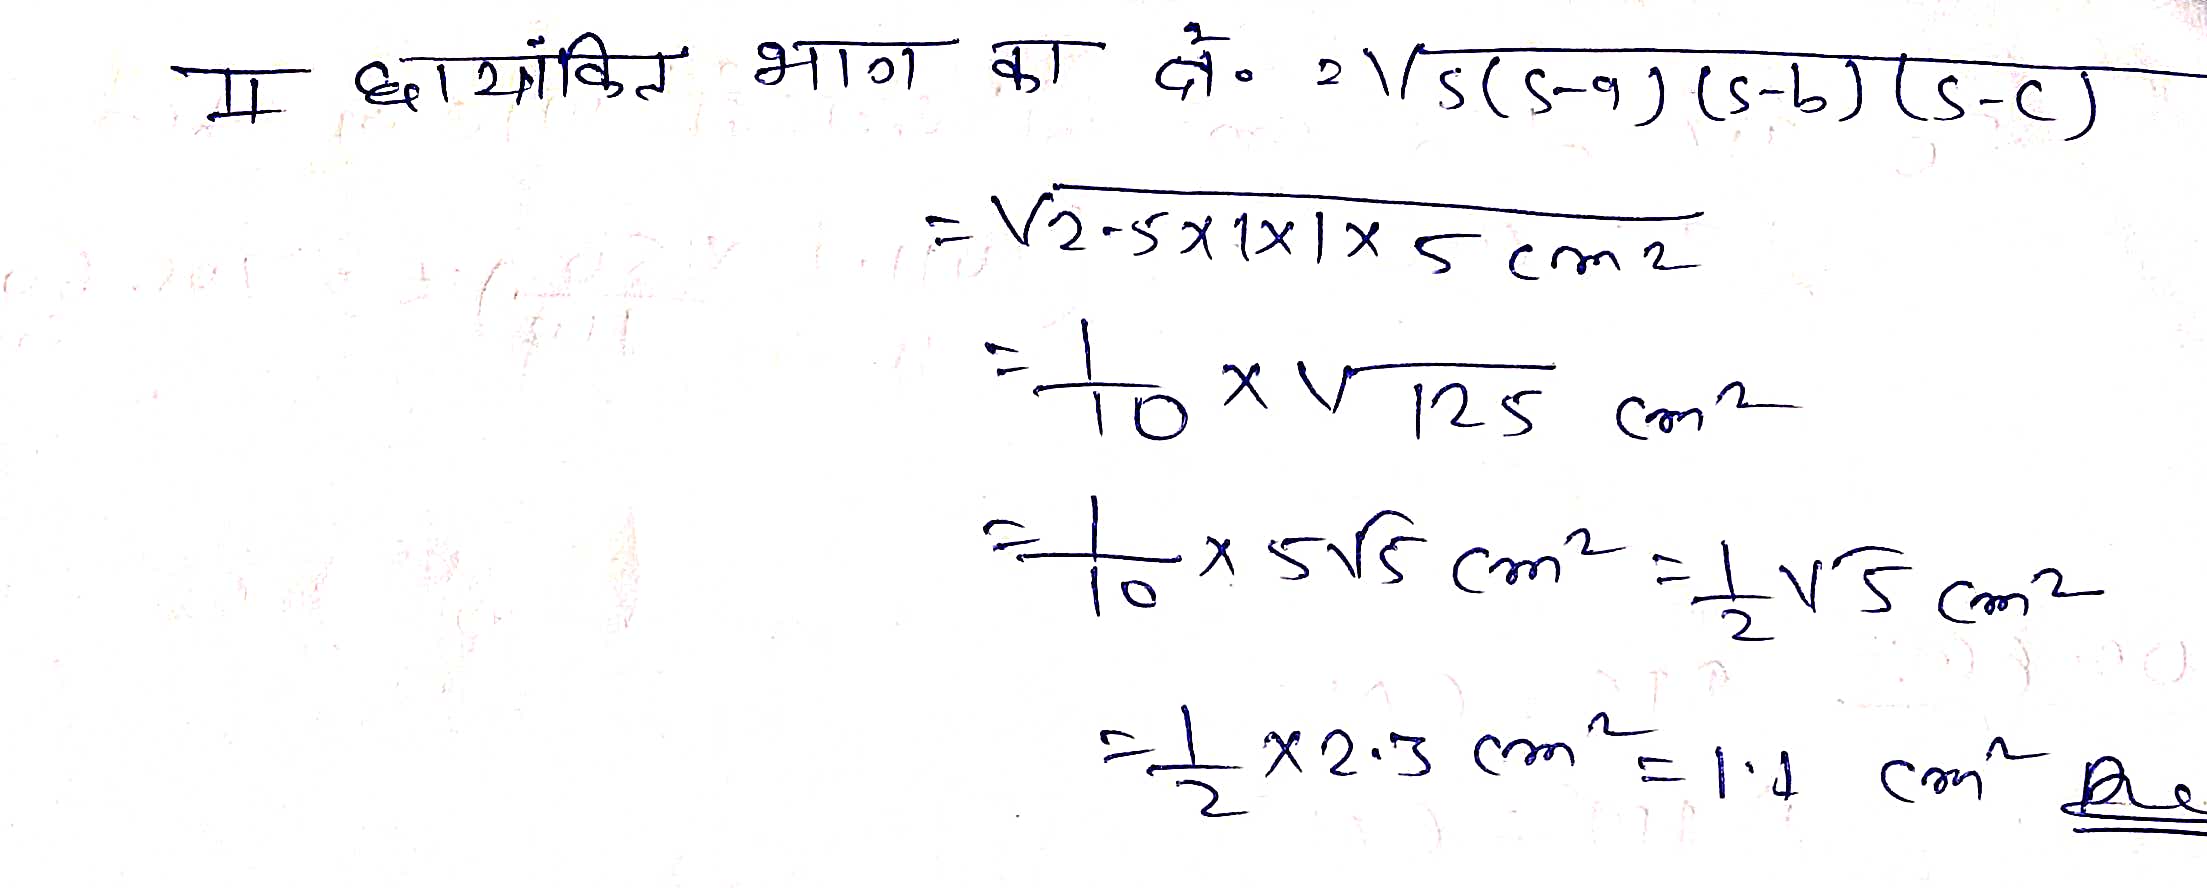 II छायांकित भाग का क्षे० = √s(s-a)(s-b)(s-c)
= √2.5x1x1x5 cm2
= 1/10 x √125 cm²
= 1/10 x 5√5 cm² = 1/2 √5 cm²
= 1/2 x 2.3 cm² = 1.1 cm²